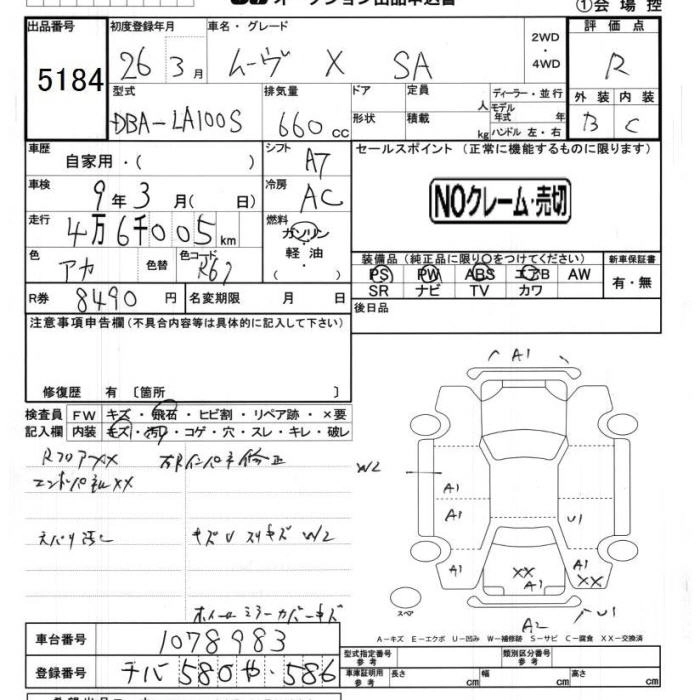 ①会場控
出品番号 5184
初度登録年月 26年3月
車名・グレード ムーヴ X SA
2WD・4WD
評価点 R
外装 B 内装 C
型式 DBA-LA100S
排気量 660cc
ドア形状
定員 人
積載 kg
ディーラー・並行
モデル年式 年
ハンドル 左・右
車歴 自家用・( )
シフト A7
セールスポイント (正常に機能するものに限ります)
車検 9年3月( 日)
冷房 AC
NOクレーム・売切
走行 4万6千005km
燃料 ガソリン・軽油・( )
色 アカ 色替 色コード R67
装備品(純正品に限り○をつけてください) 新車保証書
PS PW ABS エアB AW 有・無
SR ナビ TV カワ
R券 8490円 名変期限 月 日
後日品
注意事項申告欄(不具合内容等は具体的に記入して下さい)
修復歴 有〔箇所 〕
検査員 FW キズ・飛石・ヒビ割・リペア跡・×要
記入欄 内装 キズ・汚れ・コゲ・穴・スレ・キレ・破レ
RフロアXX
エンドパネルXX
キズU スリキズ W2
ホイールミラーカバーキズ
A1
W2
A1
A1
U1
A1
XX
A1
A1
XX
スペア
A2
U1
A-キズ E-エクボ U-凹み W-補修跡 S-サビ C-腐食 XX-交換済
車台番号 1078983
登録番号 チバ 580 や・586
型式指定番号 参考
類別区分番号 参考
車庫証明用 参考 長さ cm 幅 cm 高さ cm